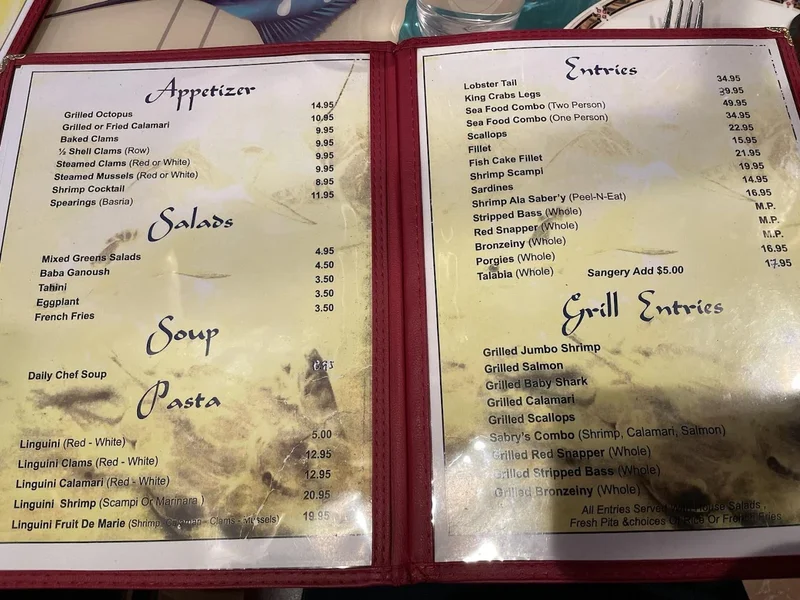 Appetizer
Grilled Octopus 14.95
Grilled or Fried Calamari 10.95
Baked Clams 9.95
½ Shell Clams (Row) 9.95
Steamed Clams (Red or White) 9.95
Steamed Mussels (Red or White) 9.95
Shrimp Cocktail 8.95
Spearings (Basria) 11.95
Salads
Mixed Greens Salads 4.95
Baba Ganoush 4.50
Tahini 3.50
Eggplant 3.50
French Fries 3.50
Soup
Daily Chef Soup
Pasta
Linguini (Red - White) 5.00
Linguini Clams (Red - White) 12.95
Linguini Calamari (Red - White) 12.95
Linguini Shrimp (Scampi Or Marinara ) 20.95
Linguini Fruit De Marie (Shrimp, - Clams - Mussels) 19.95
Entries
Lobster Tail 34.95
King Crabs Legs 39.95
Sea Food Combo (Two Person) 49.95
Sea Food Combo (One Person) 34.95
Scallops 22.95
Fillet 15.95
Fish Cake Fillet 21.95
Shrimp Scampi 19.95
Sardines 14.95
Shrimp Ala Saber'y (Peel-N-Eat) 16.95
Stripped Bass (Whole) M.P.
Red Snapper (Whole) M.P.
Bronzeiny (Whole) M.P.
Porgies (Whole) 16.95
Talabia (Whole) Sangery Add $5.00 17.95
Grill Entries
Grilled Jumbo Shrimp
Grilled Salmon
Grilled Baby Shark
Grilled Calamari
Grilled Scallops
Sabry's Combo (Shrimp, Calamari, Salmon)
Grilled Red Snapper (Whole)
Grilled Stripped Bass (Whole)
Grilled Bronzeiny (Whole)
All Entries Served House Salads ,
Fresh Pita &choices Of Rice Or French Fries